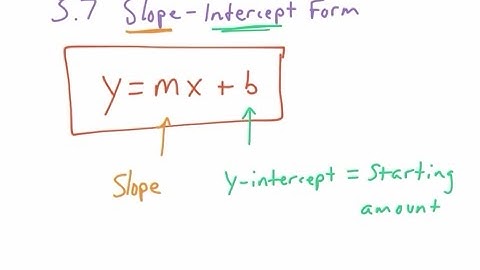 5.7 Slope-Intercept Form
y = mx + b
Slope
y-intercept = Starting
amount